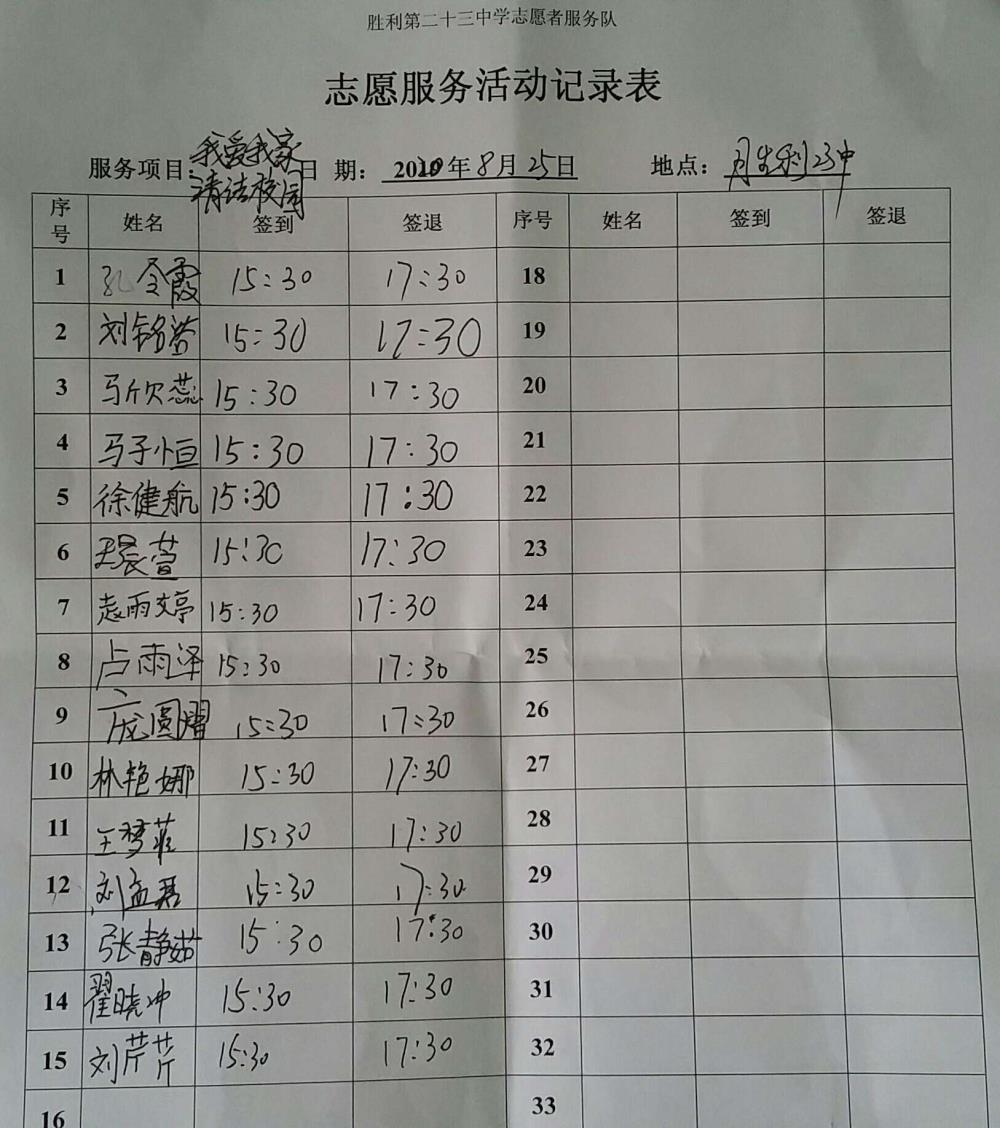 胜利第二十三中学志愿者服务队
志愿服务活动记录表
服务项目:我爱我家 清洁校园 日 期: 2019年8月25日 地点: 胜利23中
序号 姓名 签到 签退 序号 姓名 签到 签退
1 孔令霞 15:30 17:30 18
2 刘铭 15:30 17:30 19
3 马欣蕊 15:30 17:30 20
4 马子恒 15:30 17:30 21
5 徐健航 15:30 17:30 22
6 王晨萱 15:30 17:30 23
7 袁雨婷 15:30 17:30 24
8 卢雨泽 15:30 17:30 25
9 庞圆熠 15:30 17:30 26
10 林艳娜 15:30 17:30 27
11 王梦菲 15:30 17:30 28
12 刘孟君 15:30 17:30 29
13 张静茹 15:30 17:30 30
14 翟晓冲 15:30 17:30 31
15 刘芹芹 15:30 17:30 32
16 33